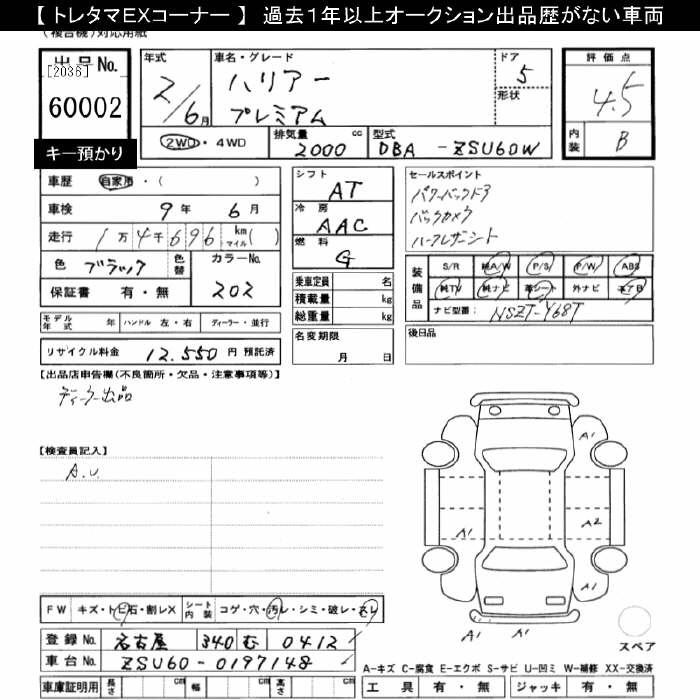 【 トレタマEXコーナー 】 過去1年以上オークション出品歴がない車両
(複合名) 対応用紙
出品No.
[2036]
60002
キー預かり
年式
2/6月
車名・グレード
ハリアー
プレミアム
ドア
5
形状
評価点
4.5
内装
B
2WD・4WD
排気量
2000
cc
型式
DBA - ZSU60W
車歴 自家用・( )
車検 9年 6月
走行 1万4千696 km マイル( )
色 ブラック 色替
カラーNo.
202
保証書 有・無
シフト
AT
冷房
AAC
燃料
G
乗車定員 名
積載量 kg
総重量 kg
名変期限
月 日
セールスポイント
パワーバックドア
バックカメラ
ハーフレザーシート
装備品
S/R 純A/W P/S P/W ABS
純TV 純ナビ 革シート 外ナビ エアB
ナビ型番: NSZT-Y68T
後日品
モデル年式 年 ハンドル 左・右 ディーラー・並行
リサイクル料金 12,550 円 預託済
【出品店申告欄(不良箇所・欠品・注意事項等)】
ディーラー出品
【検査員記入】
A.U.
A1
A1
A2
A1
A1
スペア
FW キズ・トビ石・割レX シート内装 コゲ・穴・汚レ・シミ・破レ・スレ
登録No. 名古屋 340 む 0412
車台No. ZSU60-0197148
車庫証明用 長さ cm 幅 cm 高さ cm
A-キズ C-腐食 E-エクボ S-サビ U-凹ミ W-補修 XX-交換済
工具 有・無 ジャッキ 有・無